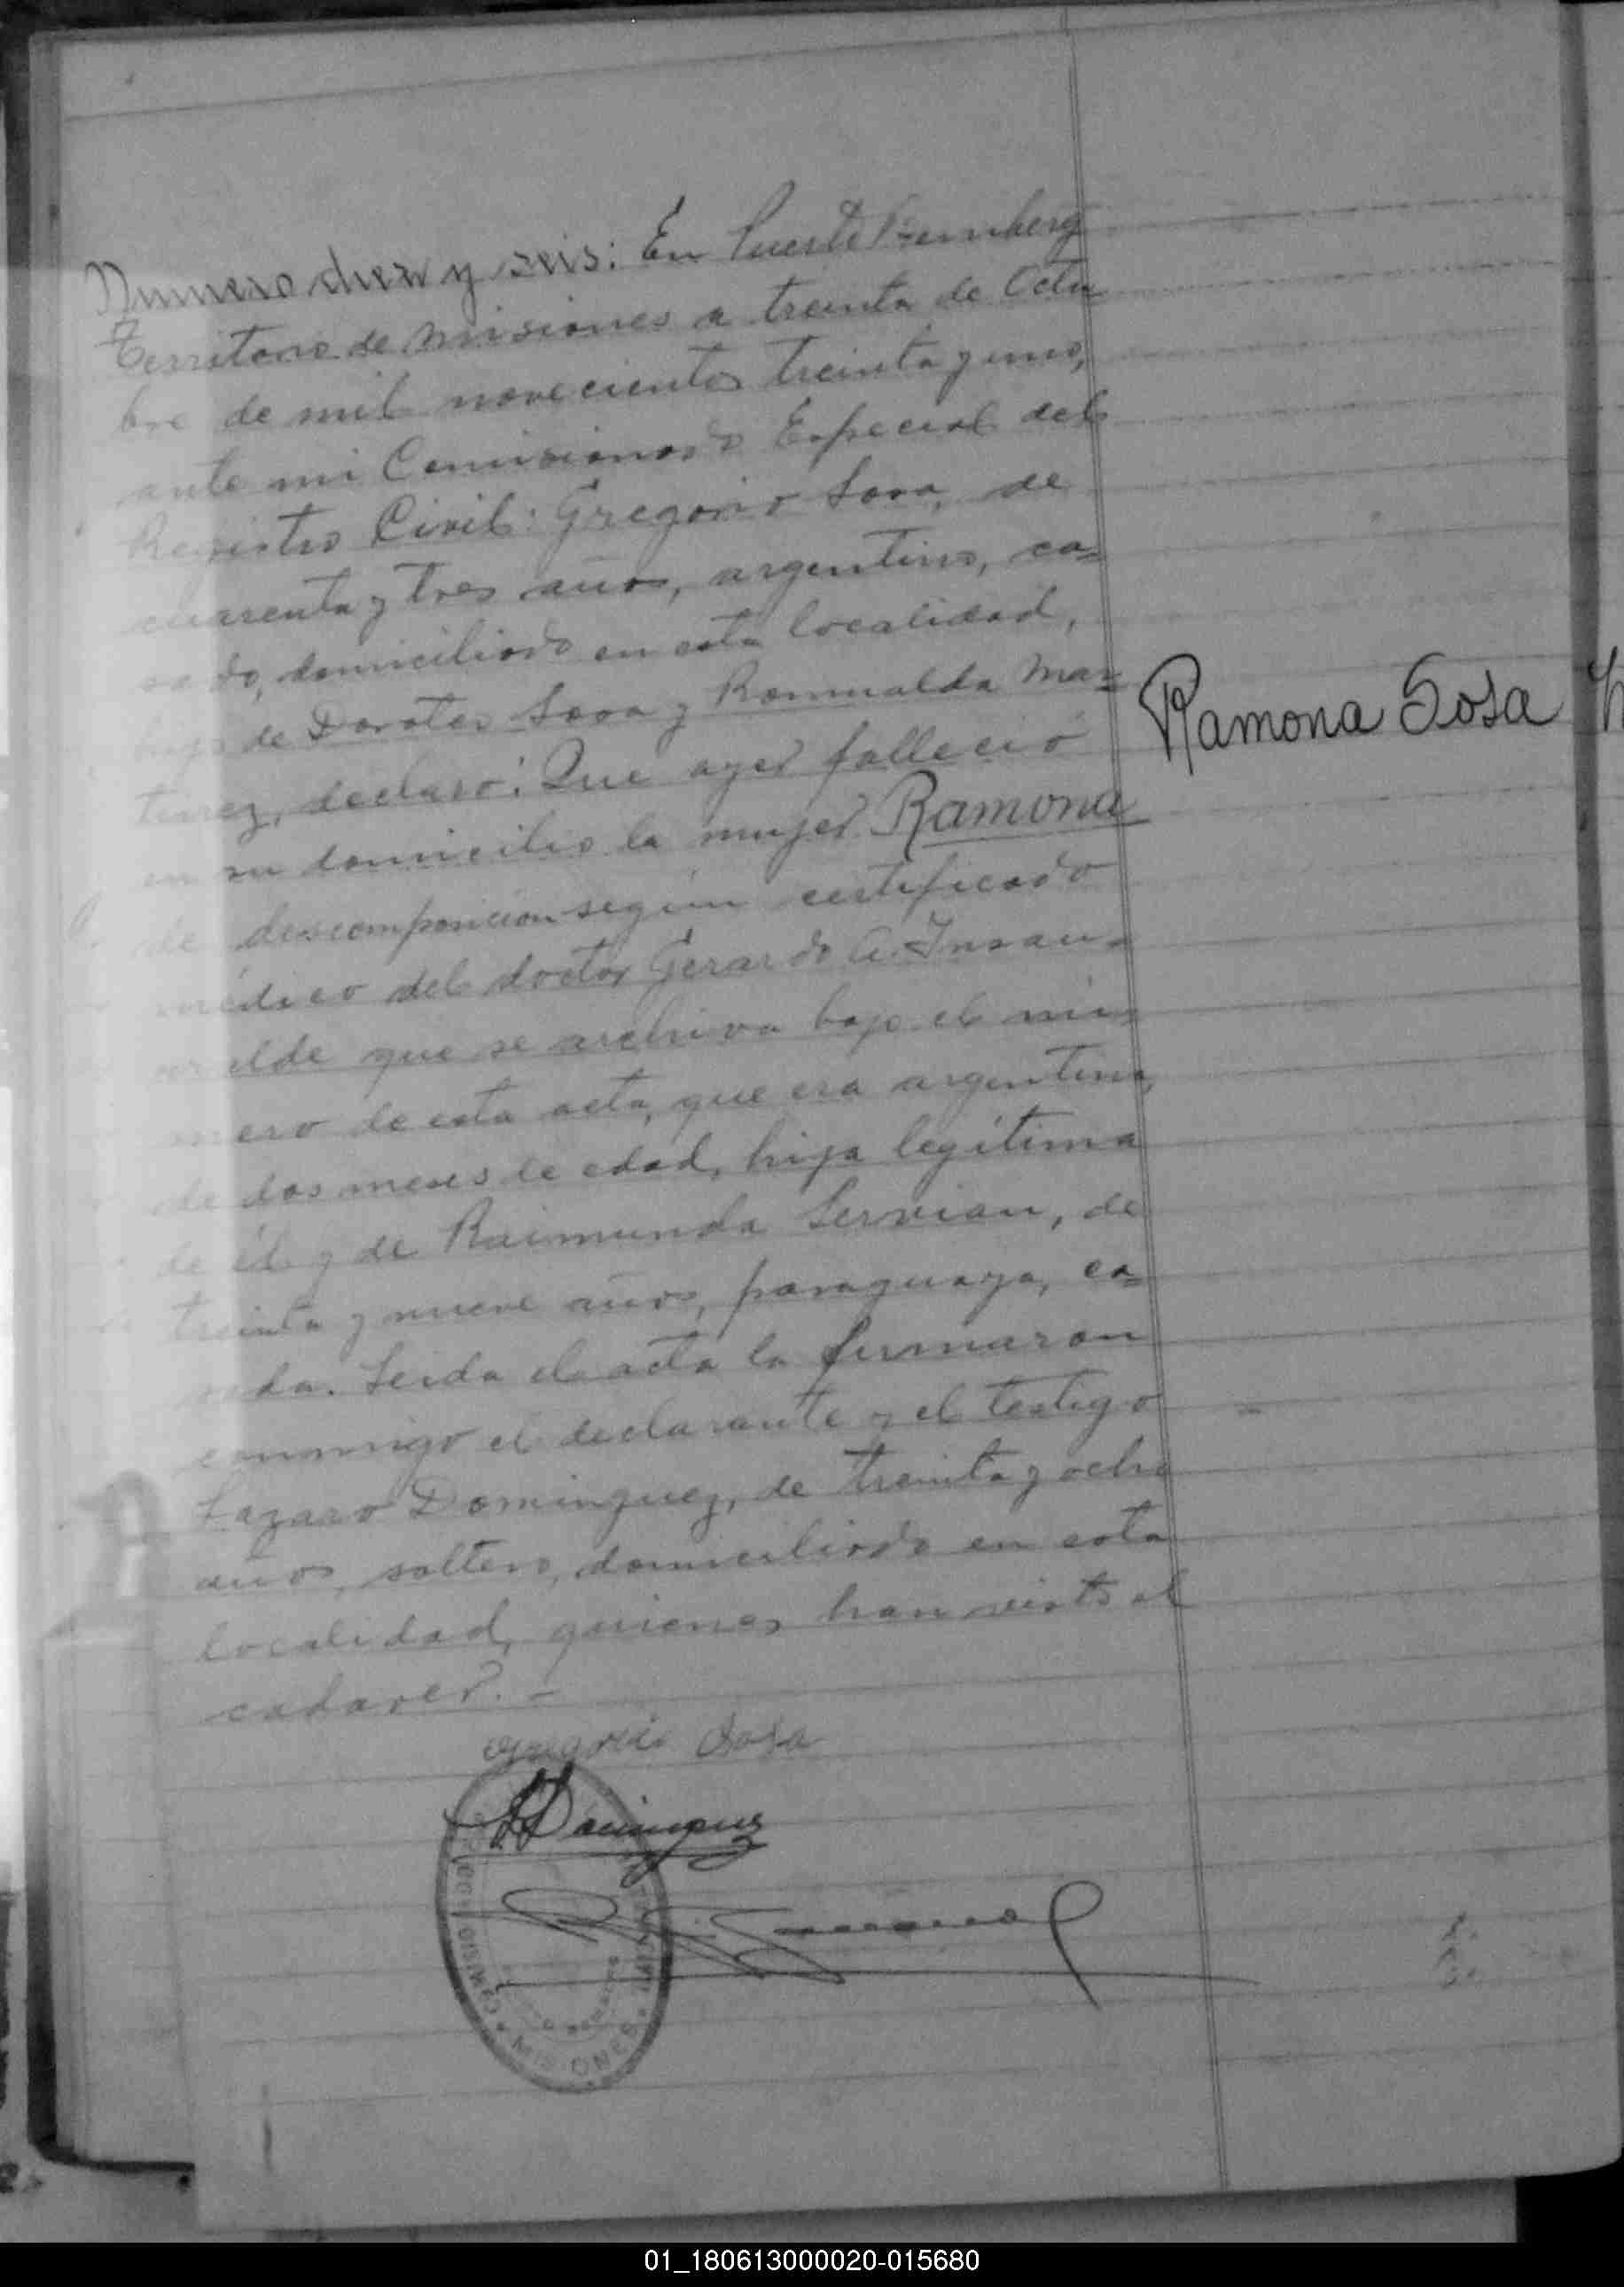 Numero diez y seis: En Puerto Bemberg
Territorio de Misiones a treinta de Octu
bre de mil novecientos treinta y uno,
ante mi Comisionado Especial del
Registro Civil: Gregorio Sosa, de
cuarenta y tres años, argentino, ca=
sado, domiciliado en esta localidad,
hijo de Doroteo Sosa y Romualda Mar=
tinez, declaró: Que ayer falleció
en su domicilio la mujer Ramona
de descomposicion según certificado
médico del doctor Gerardo A. Insau-
rralde que se archiva bajo el nú=
mero de esta acta, que era argentina,
de dos meses de edad, hija legítima
de él y de Raimunda Servian, de
treinta y nueve años, paraguaya, ca=
sada. Leida el acta la firmaron
conmigo el declarante y el testigo
Lazaro Dominguez, de treinta y ocho
años, soltero, domiciliado en esta
localidad, quienes han visto el
cadaver. -
Ramona Sosa
Gregorio Sosa
LDominguez
MISIONES
01_180613000020-015680